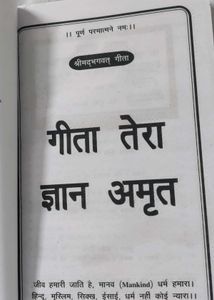 ।। पूर्ण परमात्मने नमः ।।
श्रीमद्भगवत् गीता
गीता तेरा
ज्ञान अमृत
जीव हमारी जाति है, मानव (Mankind) धर्म हमारा।
हिन्दु, मुस्लिम, सिक्ख, ईसाई, धर्म नहीं कोई न्यारा।।